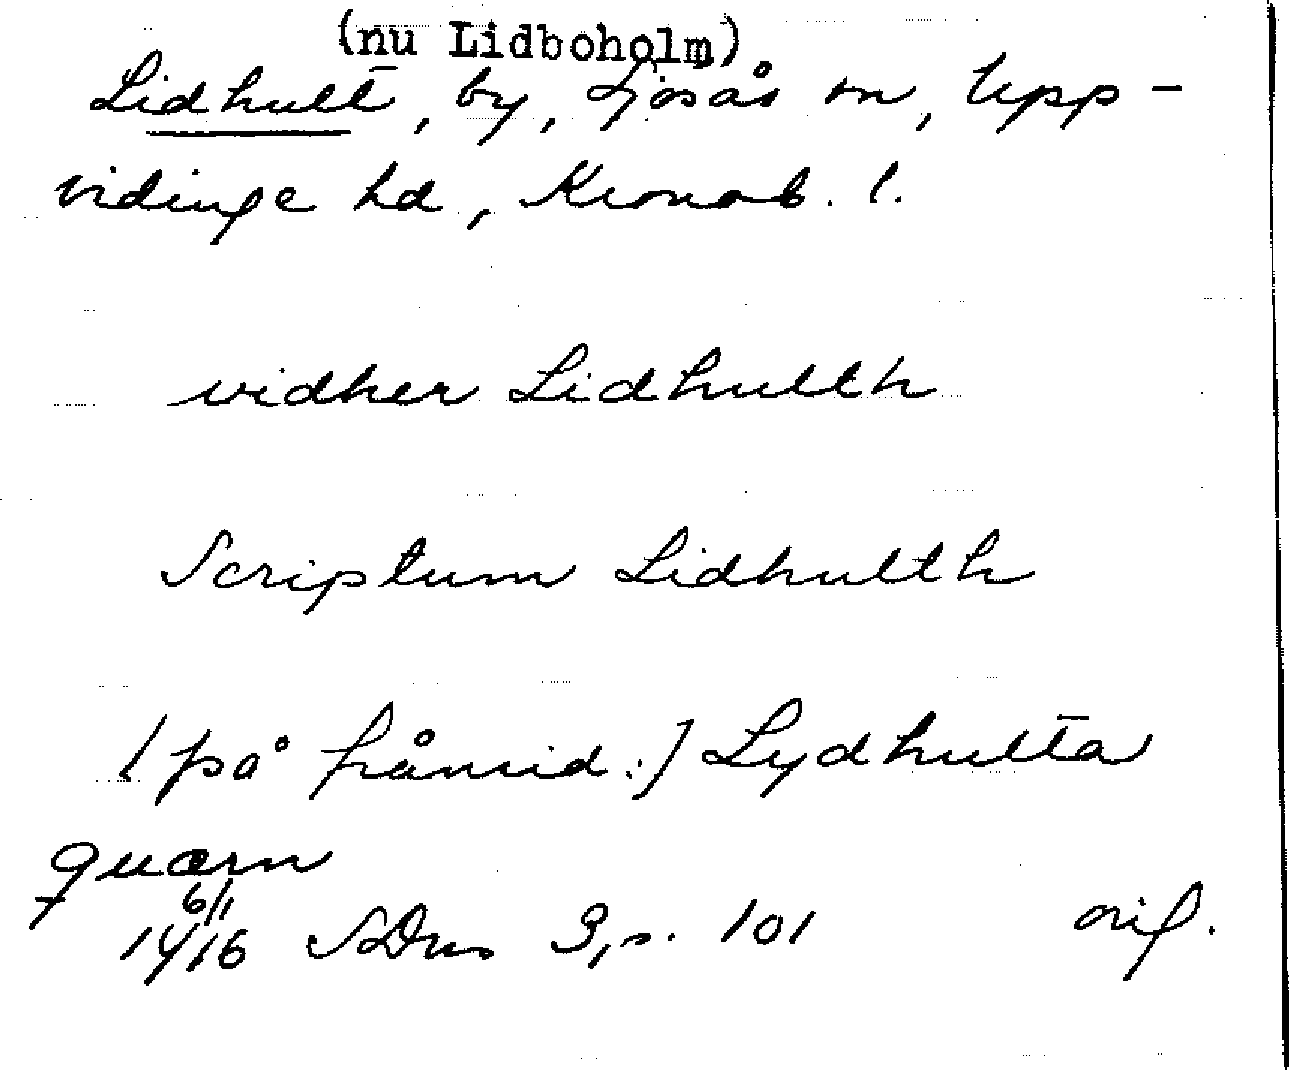 (nu Lidboholm)
Lidhult, by, Sjösås sn, Upp-
vidinge hd, Kronob. l.
vidher Lidhulth
Scriptum Lidhulth
[på frånsid.:] Lydhulta
quærn
1416 6/1 SDns 3, s. 101 orig.